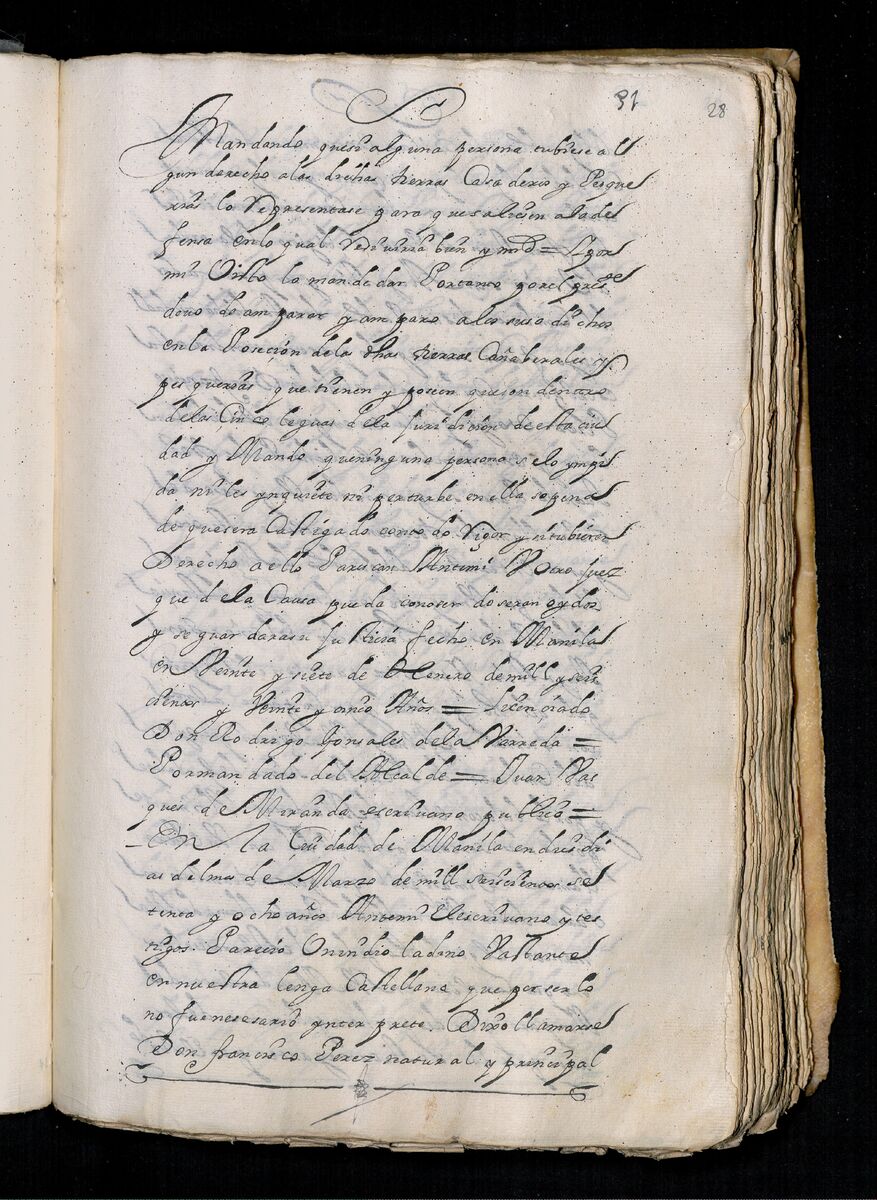 31 28
Mandando que si alguna persona tubiese al
gun derecho a las dichas tierras Casaderos y Pesque
rias lo Representase para que saliesen a la de
fensa en lo qual Reciuiria bien y mrd = Y por
mi Visto la mande dar Por tanto por el pressete
deuo de amparar y amparo a los suso dichos
en la Poseçion de las dhas tierras Cañaberales y
pesquerias que tienen y poseen que son dentro
de las Cinco leguas de la Juridicion de esta ciu
dad y Mando que ninguna persona se lo ympi
da ni les ynquiete ni perturbe en ella so pena
de que sera Castigado con todo Rigor y si tubieren
Derecho a ello Parescan Ante mi V Otro Juez
que de la Causa pueda conoser do seran oydos
y se guardara su Justicia fecho en Manila
en Veinte y siete de Henero de mill y seis
cientos y Veinte y cinco Años = Licenciado
Don Rodrigo Gonsales de la Varreda =
Por mandado del Alcalde = Juan Vas
ques de Miranda escriuano publico =
En la Ciudad de Manila en dies di
as del mes de Marzo de mill seiscientos se
tenta y ocho años Ante mi El escriuano y tes
tigos Parecio Un indio ladino Vastante
en nuestra lenga Castellana que por ser lo
no fue nesesario ynterprete. Dixo llamarse
Don francisco Perez natural y principal